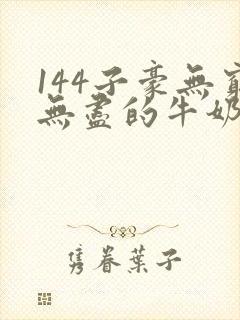 144子豪無窮
無盡的牛奶
隽眷葉子